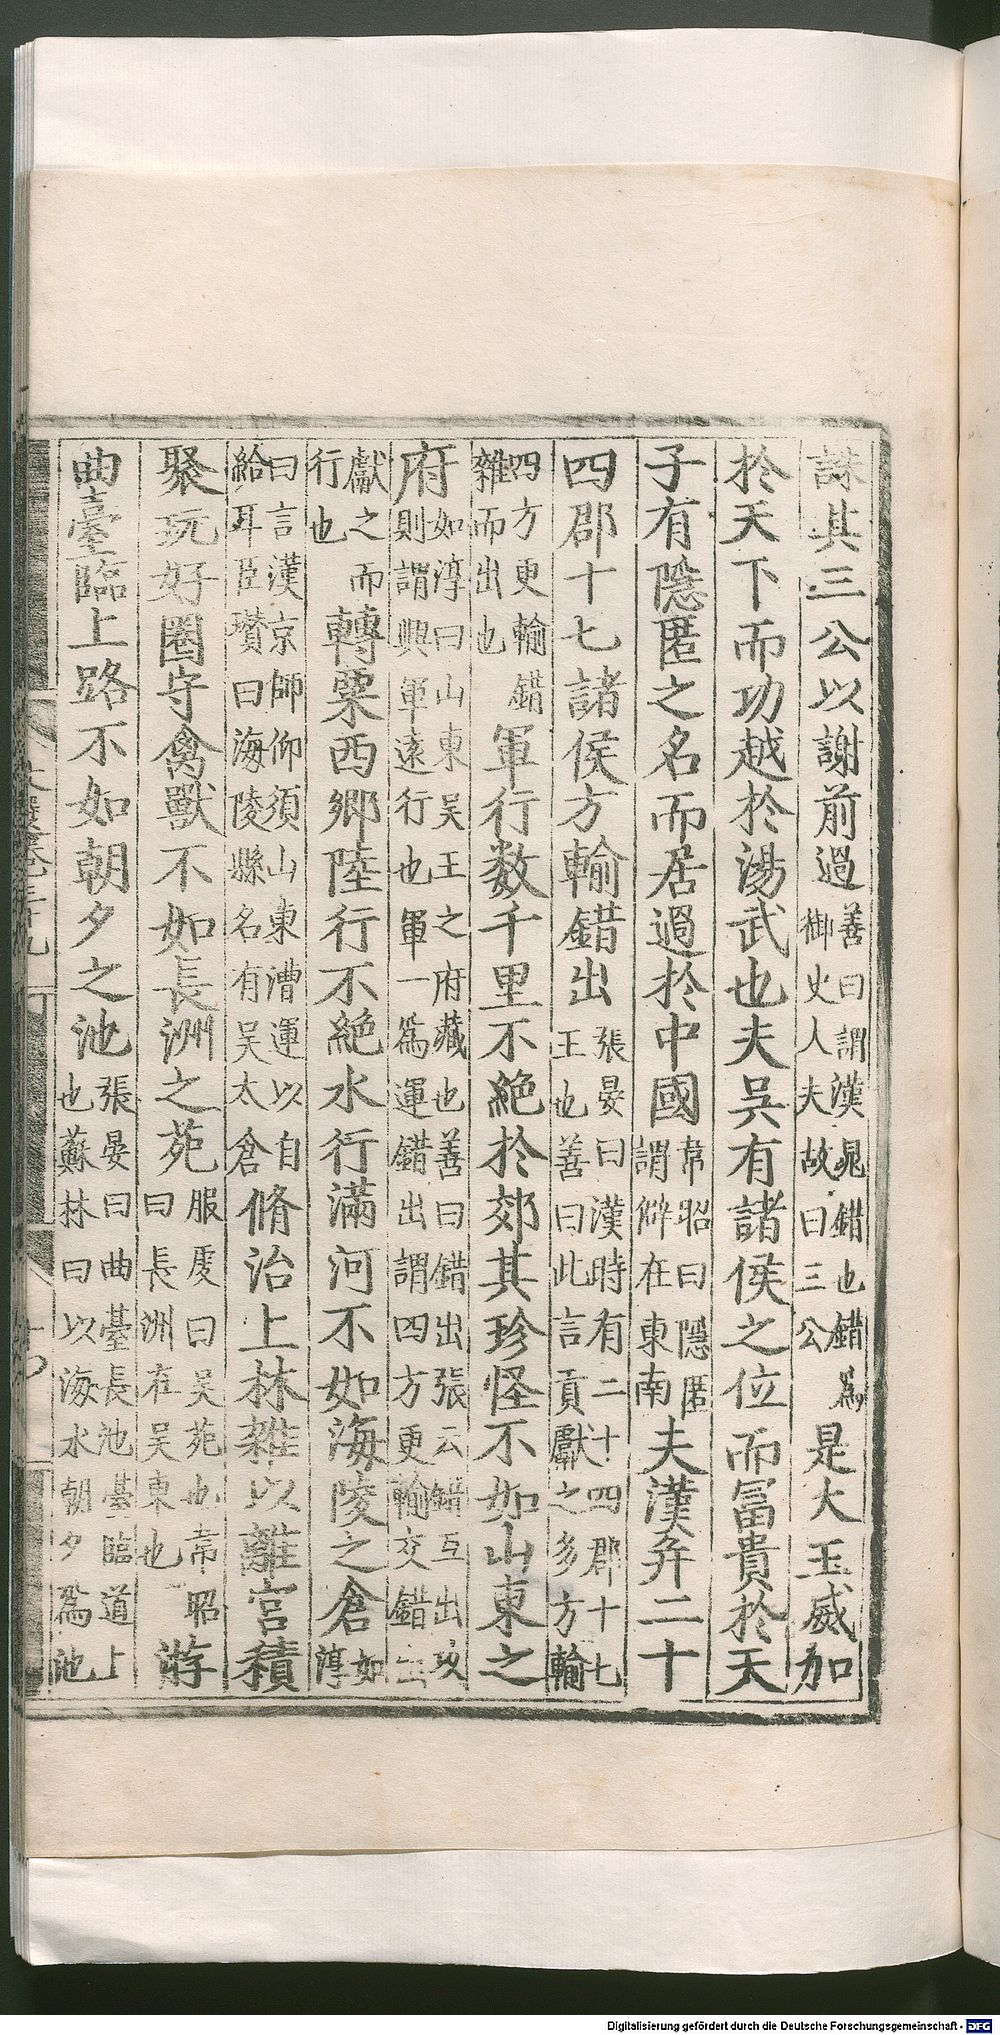 誅其三公以謝前過善曰謂漢晁錯也錯為御史人夫故曰三公是大王威加
於天下而功越於湯武也夫吳有諸侯之位而富貴於天
子有隱匿之名而居過於中國韋昭曰隱匿謂僻在東南夫漢并二十
四郡十七諸侯方輸錯出張晏曰漢時有二十四郡十七王也善曰此言貢獻之多方輸
四方更輸錯雜而出也軍行数千里不絕於郊其珍怪不如山東之
府如淳曰山東吳王之府藏也善曰錯出張云錯互出攻則謂興軍遠行也軍一為運錯出謂四方更輸交錯
獻之而行也轉粟西鄉陸行不絕水行滿河不如海陵之倉如淳
曰言漢京師仰須山東漕運以自給耳臣瓚曰海陵縣名有吳太倉脩治上林雜以離宮積
聚玩好圈守禽獸不如長洲之苑服虔曰吳苑也韋昭曰長洲在吳東也游
曲臺臨上路不如朝夕之池張晏曰曲臺長池臺臨道上也蘇林曰以海水朝夕為池
文選卷三十九
Digitalisierung gefördert durch die Deutsche Forschungsgemeinschaft - DFG